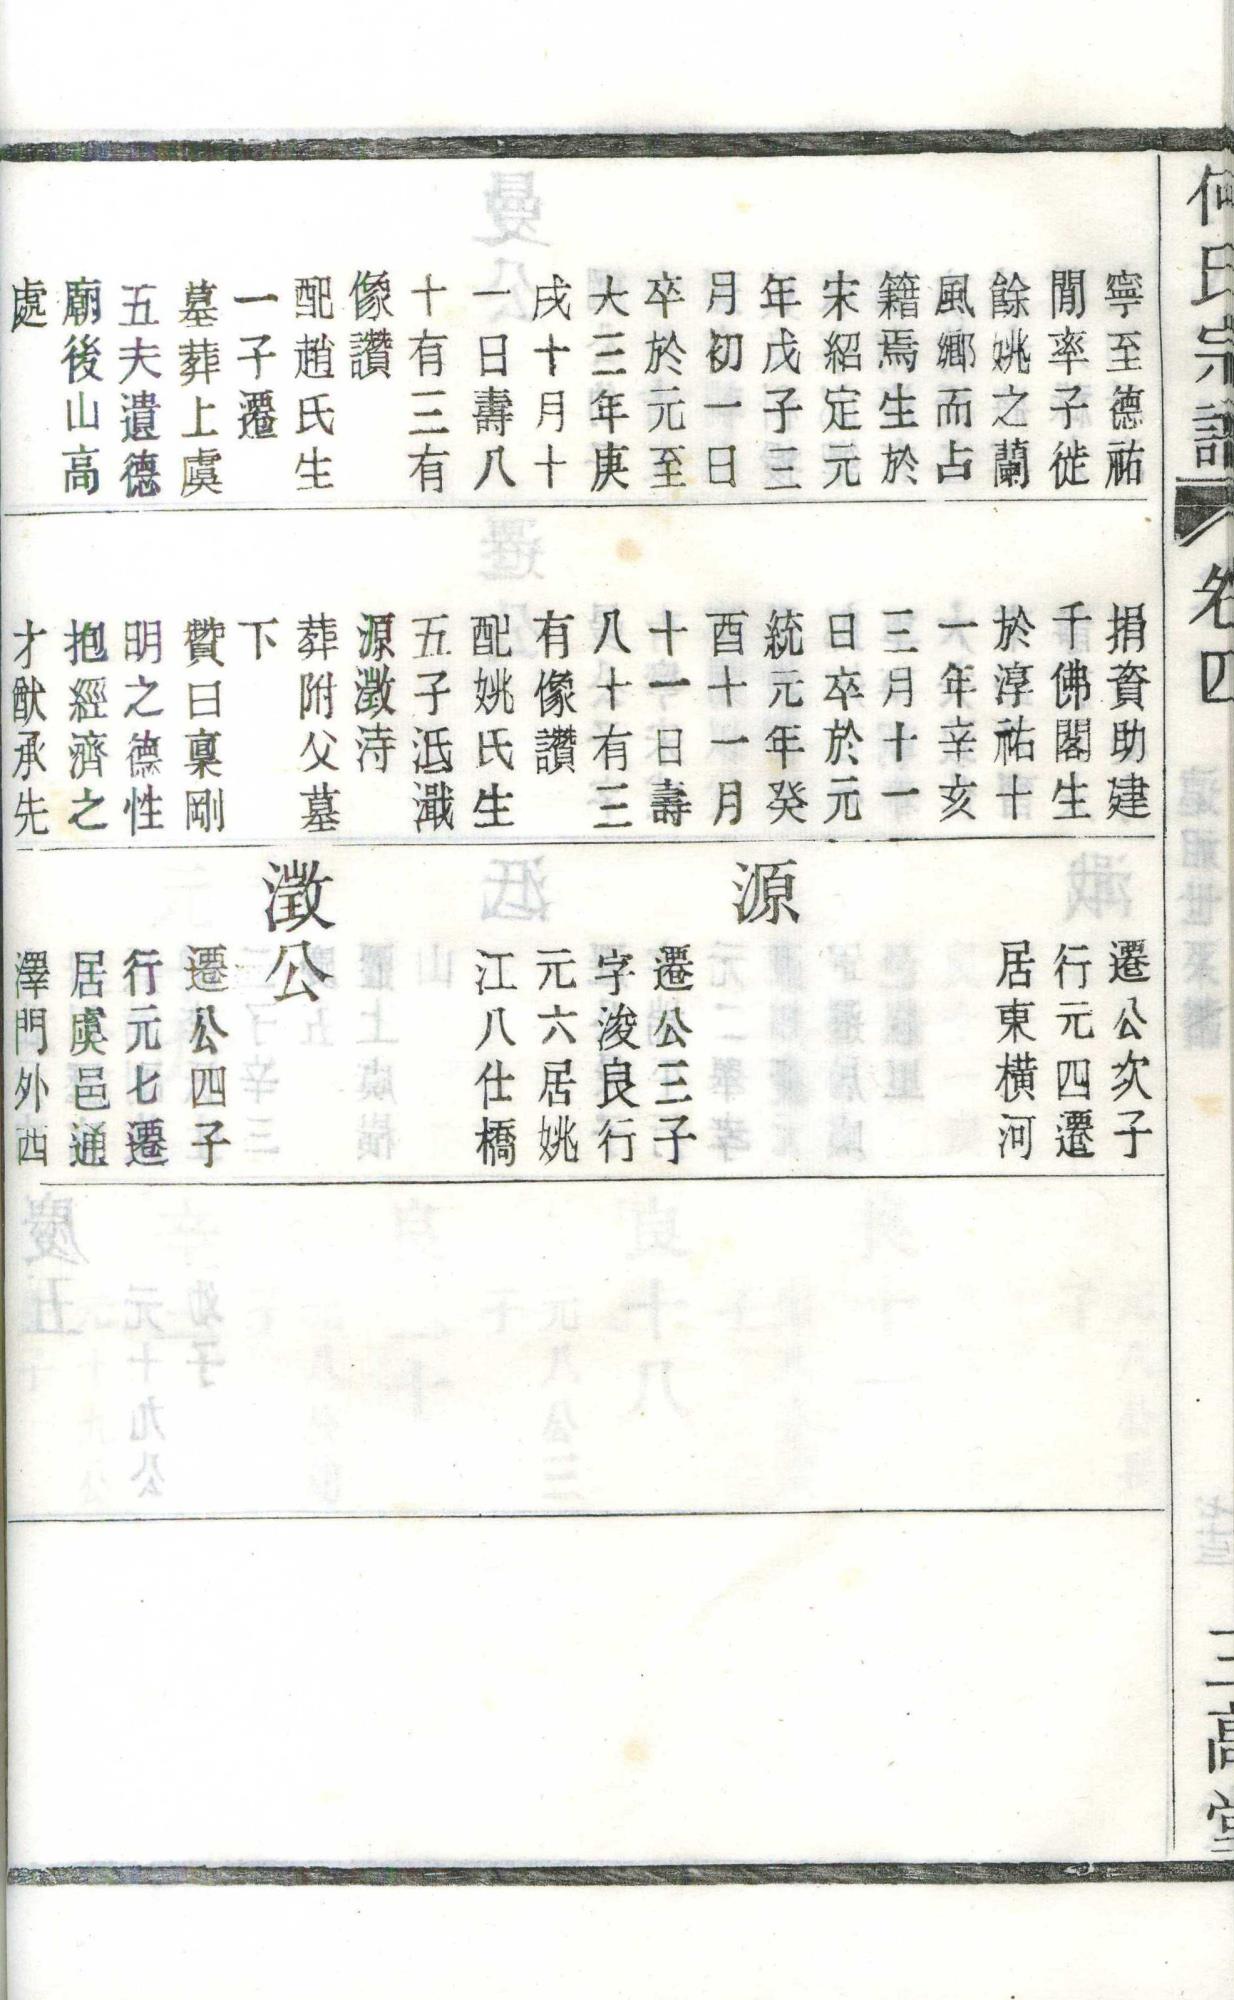 何氏宗譜
卷四
三高堂
寧至德祐
閒率子徙
餘姚之蘭
風鄉而占
籍焉生於
宋紹定元
年戊子三
月初一日
卒於元至
大三年庚
戌十月十
一日壽八
十有三有
像讚
配趙氏生
一子遷
墓葬上虞
五夫遺德
廟後山高
處
捐資助建
千佛閣生
於淳祐十
一年辛亥
三月十一
日卒於元
統元年癸
酉十一月
十一日壽
八十有三
有像讚
配姚氏生
五子泜瀐
源澂洔
葬附父墓
下
贊曰稟剛
明之德性
抱經濟之
才猷承先
遷公次子
行元四遷
居東橫河
源
遷公三子
字浚良行
元六居姚
江八仕橋
澂公
遷公四子
行元七遷
居虞邑通
澤門外西